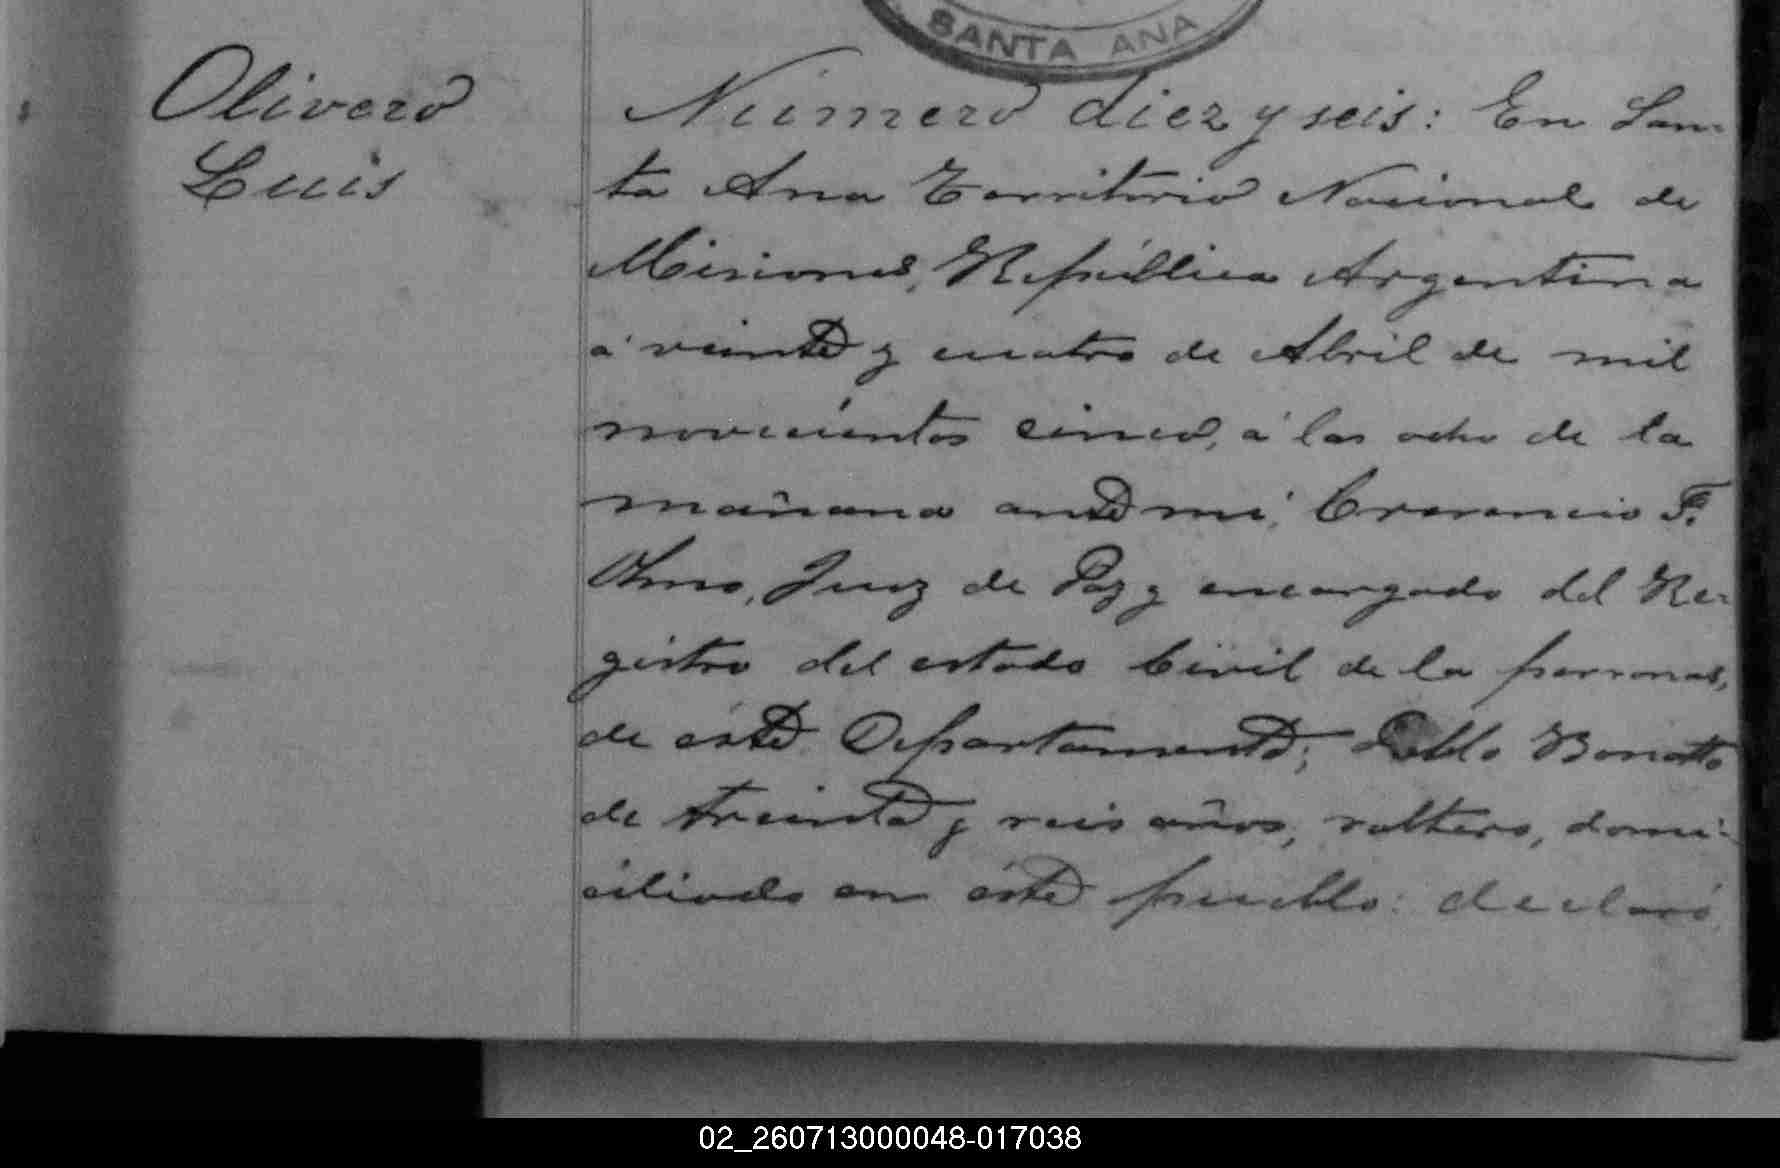 SANTA ANA
Olivero
Luis
Número diez y seis: En San-
ta Ana Territorio Nacional de
Misiones, República Argentina
á veinte y cuatro de Abril de mil
novecientos cinco, á las ocho de la
mañana ante mi, F.
Olmo, Juez de Paz y encargado del Re-
gistro del estado Civil de la personas,
de éste Departamento; Pablo Bonetto
de treinta y seis años, soltero, domi-
ciliado en éste pueblo: declaró
02_260713000048-017038